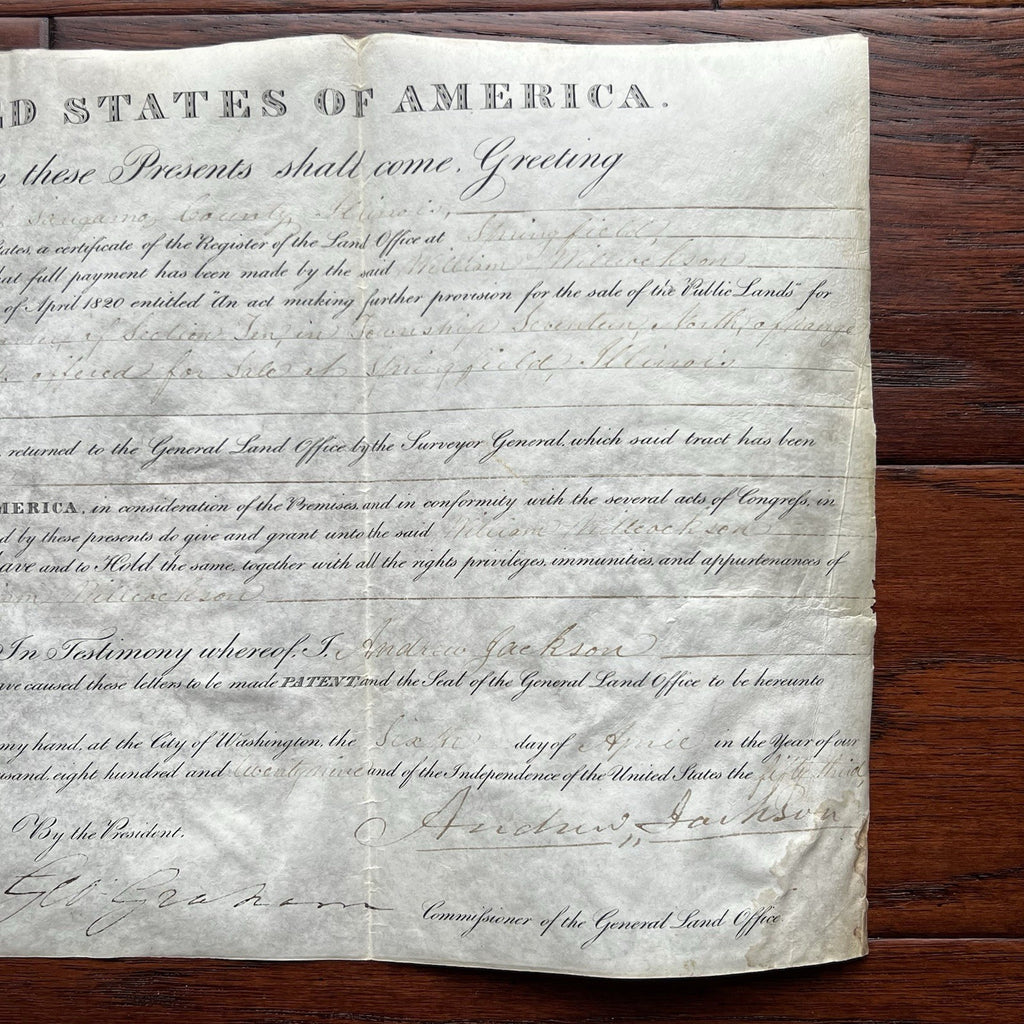 D STATES OF AMERICA.
these Presents shall come, Greeting
Sangamo County, Illinois,
ates, a certificate of the Register of the Land Office at Springfield,
at full payment has been made by the said William Willcockson
of April 1820 entitled "An act making further provision for the sale of the Public Lands" for
of Section Ten in Township Seventeen, North, of Range
offered for Sale at Springfield, Illinois
returned to the General Land Office by the Surveyor General, which said tract has been
MERICA, in consideration of the Premises, and in conformity with the several acts of Congress, in
d by these presents do give and grant unto the said William Willcockson
ave and to Hold the same, together with all the rights privileges, immunities, and appurtenances of
am Willcockson
In Testimony whereof, I, Andrew Jackson
ave caused these letters to be made PATENT and the Seal of the General Land Office to be hereunto
my hand, at the City of Washington, the Sixth day of April in the Year of our
ousand, eight hundred and twenty nine and of the Independence of the United States the fifty third
By the President. Andrew Jackson
Geo: Graham Commissioner of the General Land Office